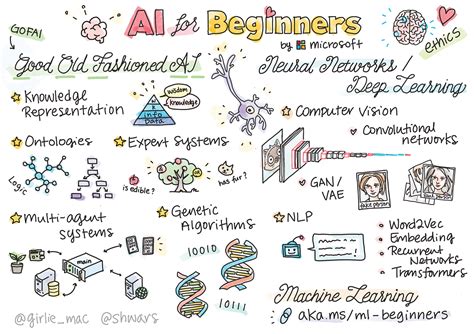 AI for Beginners
by microsoft
GOFAI
ethics
Good Old Fashioned AI
Knowledge
Representation
wisdom
Knowledge
info
Data
Ontologies
Logic
Expert Systems
is edible?
has fur?
Multi-agent
systems
main
Genetic
Algorithms
10010
10111
Neural Networks /
Deep Learning
Computer Vision
Convolutional
networks
GAN/
VAE
fake person
NLP
Word2Vec
Embedding
Recurrent
Networks
Transformers
Machine Learning
aka.ms/ml-beginners
@girlie_mac @shwars